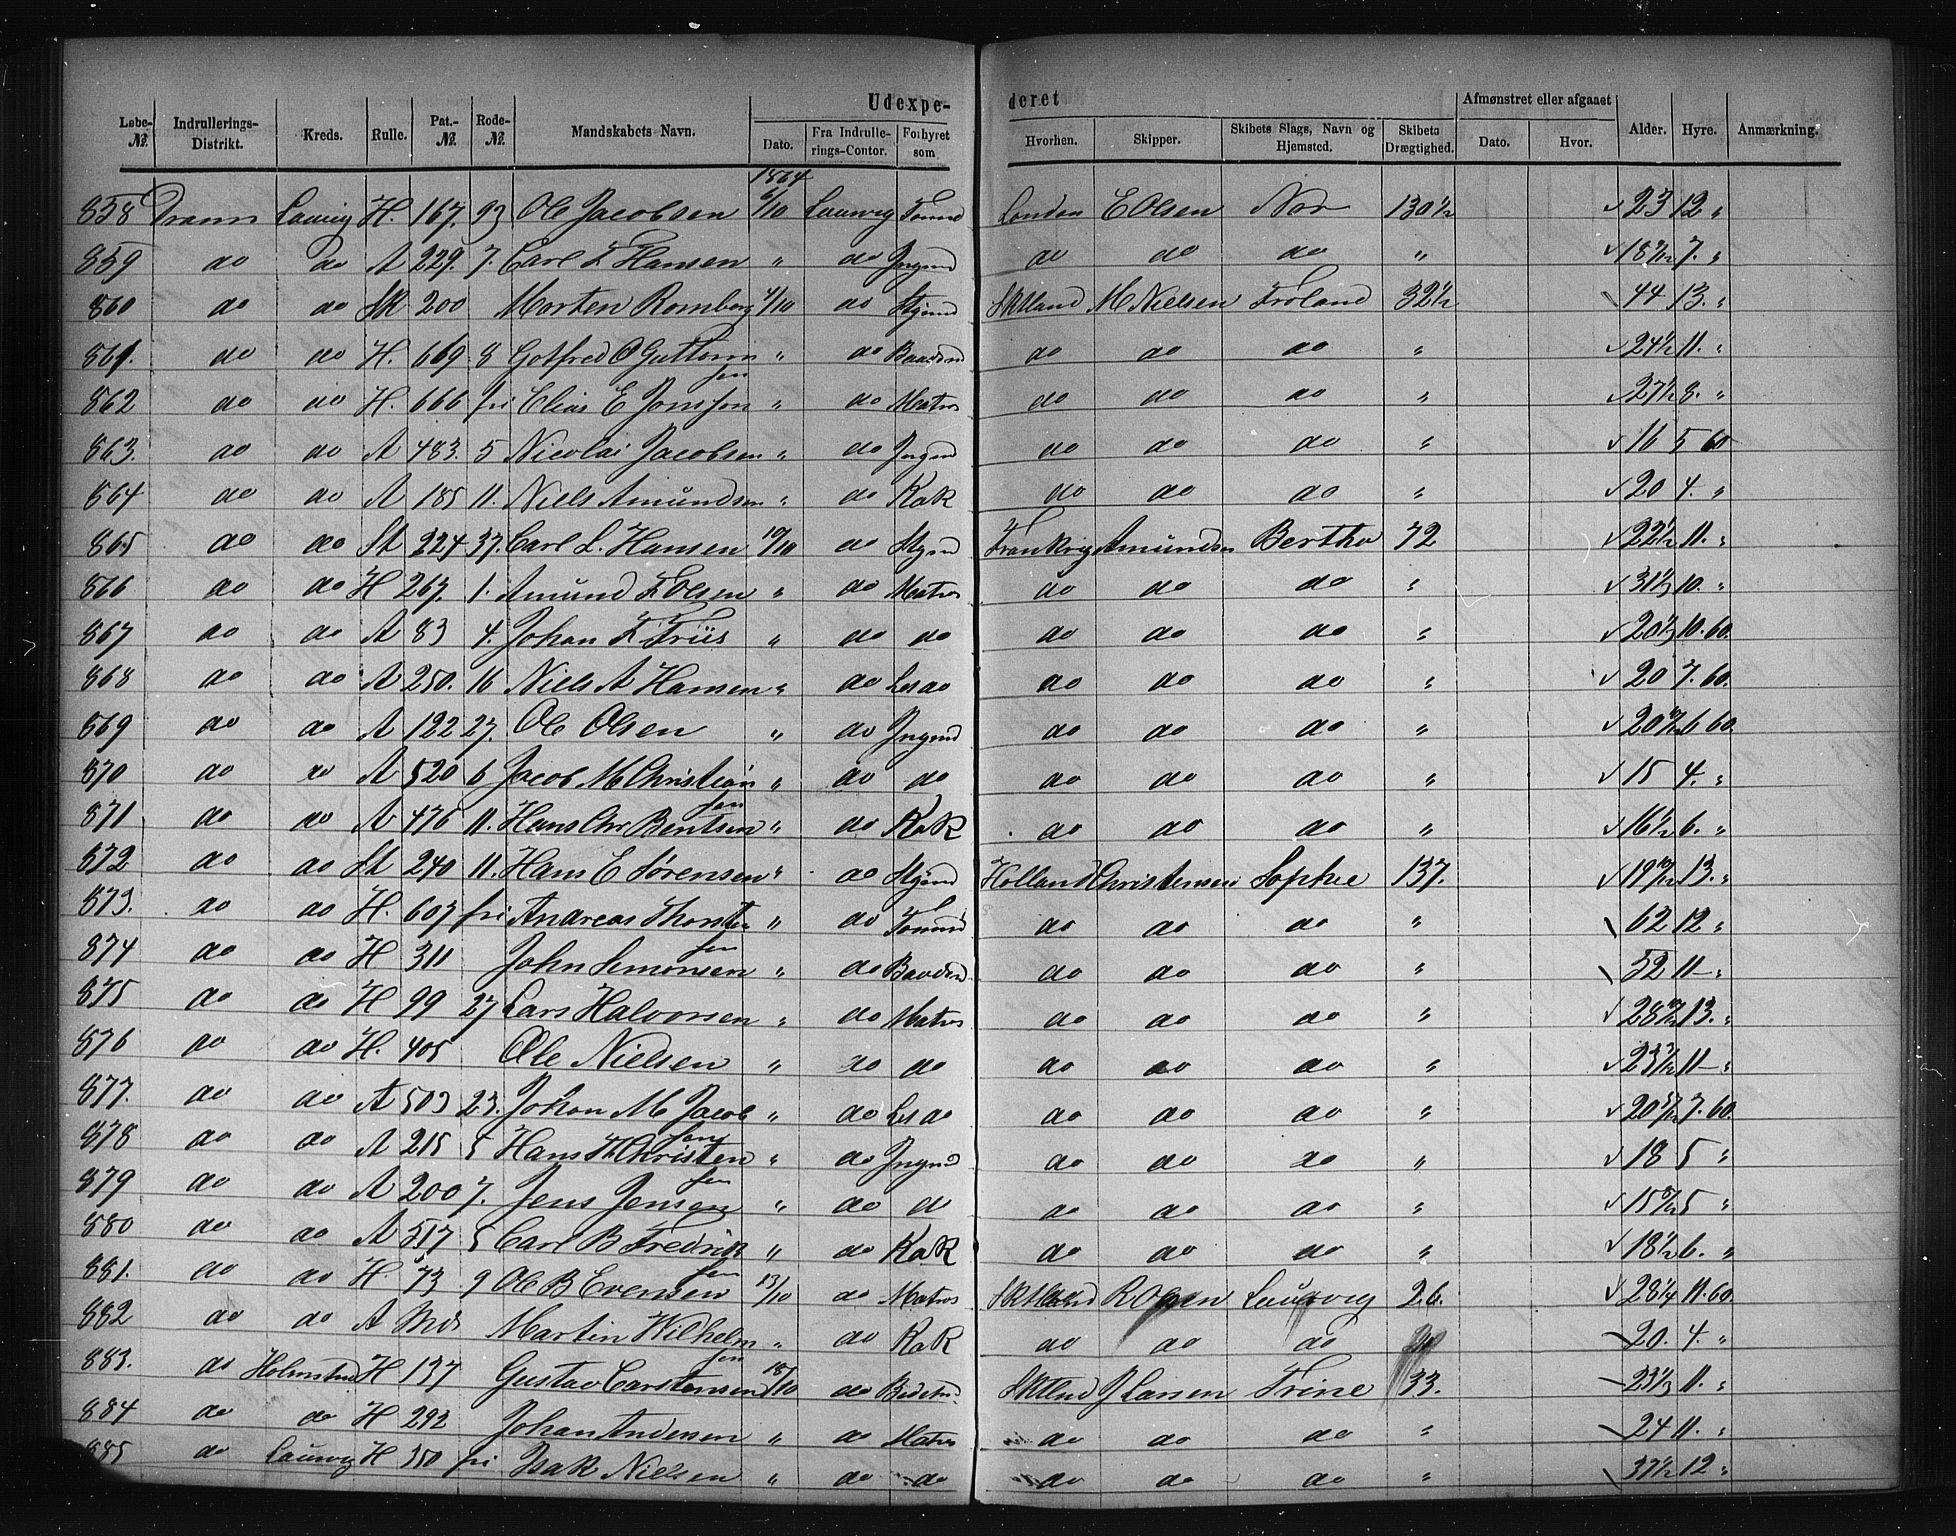 Udexpederet
Afmønstret eller afgaaet
Løbe-№. Indrullerings-Distrikt. Kreds. Rulle. Pat.-№. Rode-№. Mandskabets Navn. Dato. Fra Indrullerings-Contor. Forhyret som Hvorhen. Skipper. Skibets Slags, Navn og Hjemsted. Skibets Drægtighed. Dato. Hvor. Alder. Hyre. Anmærkning.
1864
858 Dram Laurvig H. 167. 93 Ole Jacobsen 6/10 Laurvig Tømd London E Olsen Nor 130½ 23 12 "
859 do do A 229. 7. Carl F Hansen " do Jngmd do do do " 18 7. "
860 do do St 200 Morten Romberg 4/10 do Stymd Sktland M Nielsen Froland 32½ 44 13. "
861. do do H. 669 8 Gotfred O Guttormsen " do Baadsmd do do do " 24½ 11. "
862 do do H. 666 fri Elias E Jonssen " do Matros do do do " 27½ 8. "
863. do do A 483. 5 Nicolai Jacobsen " do Jngmd do do do " 16 5 60
864 do do A 185 11. Niels Amundsen " do Kok do do do " 20 4. "
865 do do St 224 37. Carl L. Hansen 10/10 do Stymd Frankrig Amundsen Bertha 72 22½ 11. "
866 do do H 267. 1. Amund F Olsen " do Matros do do do " 31½ 10. "
867 do do A 83 4. Johan F Friis " do do do do do " 20 10. 60.
868 do do A 250. 16 Niels A Hansen " do Les do do do do " 20 7. 60.
869 do do A 122 27. Ole Olsen " do Jngmd do do do " 20 6 60
870 do do A 520 6 Jacob M Christiansen " do do do do do " 15 4. "
871 do do A 476 11. Hans Chr Bentsen " do Kok do do do " 16½ 6. "
872 do do St 240 11. Hans E Sørensen " do Stymd Holland Christensen Sophie 137. 19 13. "
873. do do H. 607 fri Andreas Thorstensen " do Tømmd do do do " 62 12 "
874 do do H 311 John Simonsen " do Baadsmd do do do " 52 11 – "
875 do do H 99 27 Lars Halvorsen " do Matros do do do " 28 13. "
876 do do H. 405 Ole Nielsen " do do do do do " 23 11 – "
877. do do A 503 23. Johan M Jacobsen " do Les do do do do " 20 7. 60.
878 do do A 215 5 Hans Th Christensen " do Jngmd do do do " 18 5 "
879 do do A 200 7. Jens Jensen " do do do do do " 15 5 "
880 do do A 517 5 Carl B Fredriksen " do Kok do do do " 18½ 6. "
881. do do H. 73 9 Ole B Evensen 13/10 do Matros Sktland R Olsen Laurvig 26. 28¼ 11. 60
882 do do A Mds Martin Wilhelmsen " do Kok do do do 20. 4. "
883. do Holmstrd H 137 Gustav Carstensen 18/10 do Bedstmd Sktlnd J Larsen Trine 33. 23½ 11. "
884 do do H 292 Johan Andersen " do Matros do do do " 24 11. "
885 do Laurvig H 350 fri Isak Nielsen " do do do do do " 37½ 12 "